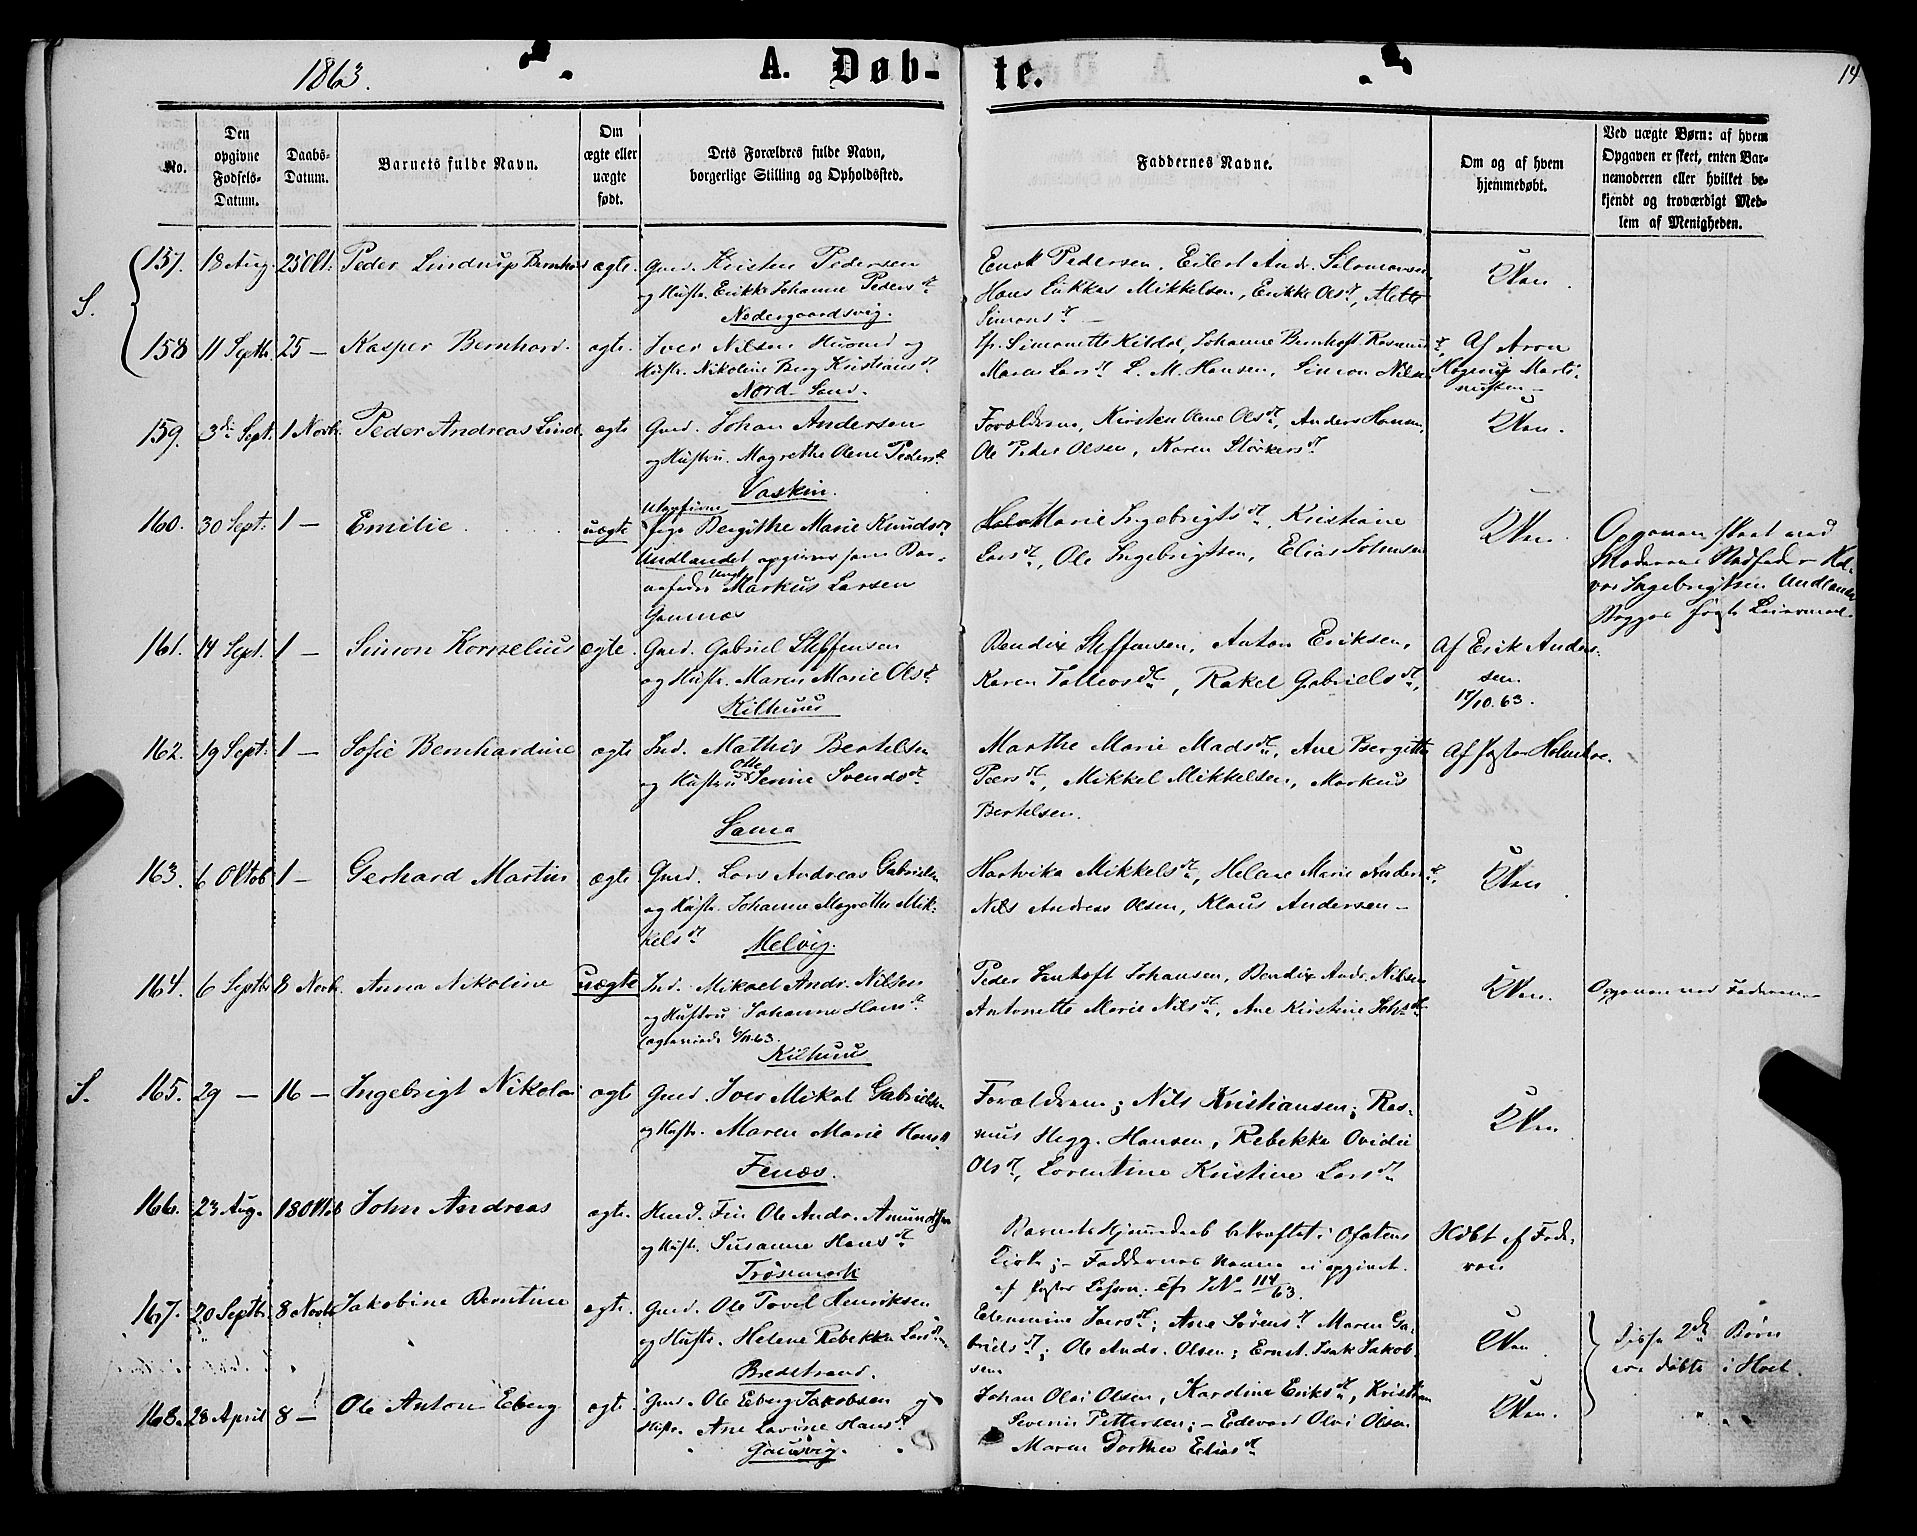 1863.
A. Døb-
te.
14
No.
Den
opgivne
Fødsels-
Datum.
Daabs-
Datum.
Barnets fulde Navn.
Om
ægte eller
uægte
født.
Dets Forældres fulde Navn,
borgerlige Stilling og Opholdssted.
Faddernes Navne.
Om og af hvem
hjemmedøbt.
Ved uægte Børn: af hvem
Opgaven er skeet, enten Bar-
nemoderen eller hvilket be-
kjendt og troværdigt Med-
lem af Menigheden.
S.
157. 18 Aug 25 Okt: Peder Lindrup Bernhard ægte. Gmd. Kristen Pedersen
og Hustr. Erikke Johanne Peders dt
Nedergaardsvig.
Enok Pedersen, Eilert Andr. Salomonsen
Hans Lukkas Mikkelsen, Erikke Ols dt, Alette
Simons dt
158 11 Septb. 25 — Kasper Bernhard. ægte. Iver Nilsen og
Hustr. Nikoline Berg Kristians dt
Nord-Sand.
Simonette Kildal, Johanne Bernhoft Rasmus dt,
Maren Lars dt L. M. Hansen, Simon Nilsen
Af Aron
Hagerup Marti-
nussen
159. 3die Sept. 1 Novb. Peder Andreas Lind. ægte Gmd. Johan Andersen
og Hustru. Magrethe Olene Peders dt
Vaskin.
Forældrene, Kirsten Olene Ols dt, Anders Hansen,
Ole Peder Olsen, Karen Størkers dt
160. 30 Sept: 1 — Emilie. uægte Pige Bergithe Marie Knuds dt
Andlandet opgiver som Bar-
nefader Ungk. Markus Larsen
Marie Ingebrigts dt, Kristiane
Lars dt, Ole Ingebrigtsen, Elias Johnsen
Opgaven skeet ved
Moderens Stedfader Hal-
vor Ingebrigtsen Andlandet
161. 14 Sept. 1 — Simon Kornelius ægte. Gmd. Gabriel Steffensen
og Hustr. Maren Marie Ols dt
Kilhuus
Bendix Steffensen, Anton Eriksen,
Karen Tollevs dt, Rakel Gabriels dt,
Af Erik Anders-
sen.
17/10.63.
162. 19 Sept: 1 — Sofie Bernhardine ægte Ind. Mathis Bertelsen
og Hustru Jenine Svends dt
Sama
Marthe Marie Mads dt, Ane Bergitte
Peers dt, Mikkel Mikkelsen, Markus
Bertelsen.
Af Pastor Holmboe.
163. 6 Oktob 1 — Gerhard Martin ægte Gmd. Lars Andreas Gabrielsen
og Hustr. Johanne Magrethe Mik-
kels dt
Melvig.
Hartvika Mikkels dt, Helene Marie Anders dt,
Nils Andreas Olsen, Klaus Andersen —
164. 6 Septbr 8 Novb. Anna Nikoline uægte Ind. Mikael Andr. Nilsen
og Hustru Johanne Hans dt
(ægteviede 6/11.63.
Kilhuus
Peder Johansen, Bendix Andr. Nilsen
Antonette Marie Nils dt, Ane Kirstine Johs dt
Opgaven ved Faderen
S.
165. 29 — 16 — Ingebrigt Nikolai ægte Gmd. Iver Mikal Gabrielsen
og Hustr. Maren Marie Hans dt
Fenæs.
Forældrene; Nils Kristiansen; Ras-
mus Hegg. Hansen, Rebekka Ovidie
Ols dt, Lorentine Kristine Lars dt
166. 23 Aug. 18 Oktob John Andreas ægte. Hmd. Fin Ole Andr. Amundsen
og Hustr. Susanne Hans dt
Trøsemark
Barnets Hjemmedaab bekræftet i Ofotens
Kirke; — Faddernes Navne ei opgivet.
af Pastor; cfr No 114/63.
Hdbt af Fade-
ren
167. 20 Septbr. 8 Novb Jakobine Berntine ægte. Gmd. Ole Povel Henriksen
og Hustr. Helene Rebekka Lars dt
Bredstrand.
Edenmine Ivers dt; Ane Sørens dt Maren Ga-
briels dt; Ole Andr. Olsen; Ernst Isak Jakob-
sen
disse 2de Børn
ere døbte i
168. 28 April 8 — Ole Anton Eberg ægte. Gmd. Ole Eberg Jakobsen og
Hustr. Ane Lavine Hans dt
Gausvig.
Johan Olai Olsen, Karoline Eriks dt, Kristian
Severin Pettersen; — Edevard Olai Olsen
Maren Dorthea Elias dt